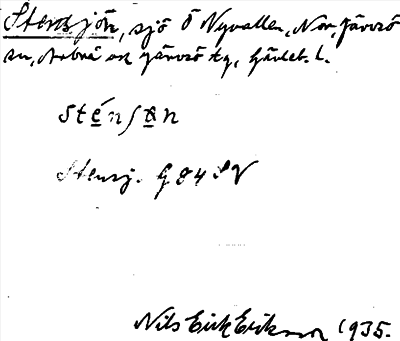 Stensjön, sjö Ö Nyvallen, Nor, Järvsö
sn, Arbrå och Järvsö tg, Gävleb. l.
sténʃøn
Stensj. G 84 SV
Nils Erik Eriksson 1935.